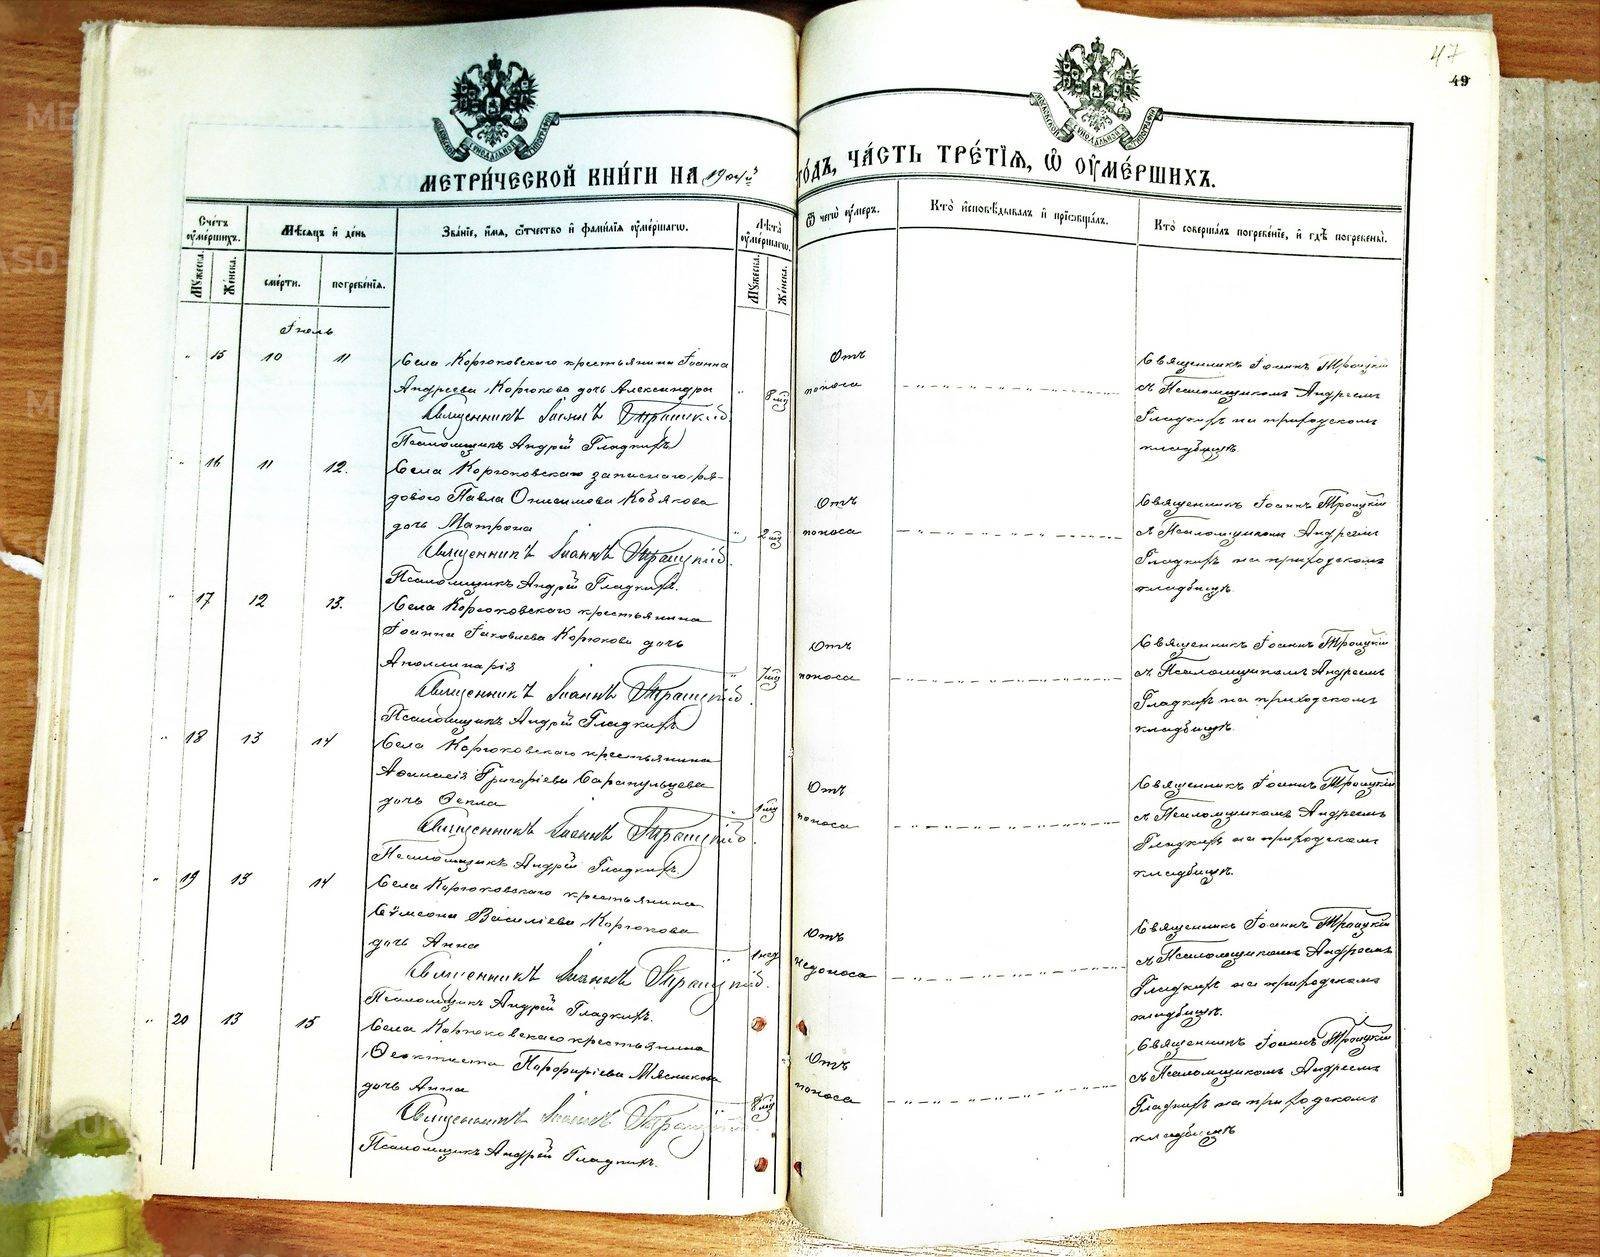 47
49
МОСКОВСКОЙ СѴНОДАЛЬНОЙ ТИПОГРАФІИ
МОСКОВСКОЙ СѴНОДАЛЬНОЙ ТИПОГРАФІИ
МЕТРИ́ЧЕСКОЙ КНИ́ГИ НА 1904й
ГО́ДЪ, ЧА́СТЬ ТРЕ́ТІѦ, Ѡ҆ ОУ҆МЕ́РШИХЪ.
Сче́тъ оу҆ме́ршихъ.
Мѣ́сяцъ и҆ де́нь
Зва́ніе, и҆́мя, ѻ҆́тчество и҆ фами́лія оу҆ме́ршагѡ.
Лѣ́та оу҆ме́ршагѡ.
Ѿ чегѡ̀ оу҆́меръ.
Кто̀ и҆сповѣ́дывалъ и҆ пріѡбща́лъ.
Кто̀ соверша́лъ погребе́ніе, и҆ гдѣ̀ погребены̀.
Му́жеска.
Же́нска.
сме́рти.
погребе́нія.
Му́жеска.
Же́нска.
Іюль
" 15 10 11 Села Корюковскаго крестьянина Іоанна
Андреева Корюкова дочь Александра " 8 мц
Священникъ Іоаннъ Троицкій
Псаломщикъ Андрей Гладкихъ
Отъ
поноса
Священникъ Іоаннъ Троицкій
съ Псаломщикомъ Андреемъ
Гладкихъ на приходскомъ
кладбищѣ.
" 16 11 12. Села Корюковскаго запаснаго ря-
дового Павла Онисимова Кобякова
дочь Матрона " 2 мц
Священникъ Іоаннъ Троицкій.
Псаломщикъ Андрей Гладкихъ.
Отъ
поноса
Священникъ Іоаннъ Троицкій
съ Псаломщикомъ Андреемъ
Гладкихъ на приходскомъ
кладбищѣ.
" 17 12 13. Села Корюковскаго крестьянина
Іоанна Іаковлева Корюкова дочь
Аполлинарія " 7 мц
Священникъ Іоаннъ Троицкій.
Псаломщикъ Андрей Гладкихъ
Отъ
поноса
Священникъ Іоаннъ Троицкій
съ Псаломщикомъ Андреемъ
Гладкихъ на приходскомъ
кладбищѣ.
" 18 13 14 Села Корюковскаго крестьянина
Аѳанасія Григоріева Сарапульцева
дочь Ѳекла " 1 мц
Священникъ Іоаннъ Троицкій.
Псаломщикъ Андрей Гладкихъ
Отъ
поноса
Священникъ Іоаннъ Троицкій
съ Псаломщикомъ Андреемъ
Гладкихъ на приходскомъ
кладбищѣ.
" 19 13 14 Села Корюковскаго крестьянина
Сѵмеона Василіева Корюкова
дочь Анна " 1 нед
Священникъ Іоаннъ Троицкій.
Псаломщикъ Андрей Гладкихъ.
Отъ
недоноса
Священникъ Іоаннъ Троицкій
съ Псаломщикомъ Андреемъ
Гладкихъ на приходскомъ
кладбищѣ.
" 20 13 15 Села Корюковскаго крестьянина
Ѳеоктиста Порфиріева Мясникова
дочь Анна " 8 мц
Священникъ Іоаннъ Троицкій
Псаломщикъ Андрей Гладкихъ.
Отъ
поноса
Священникъ Іоаннъ Троицкій
съ Псаломщикомъ Андреемъ
Гладкихъ на приходскомъ
кладбищѣ